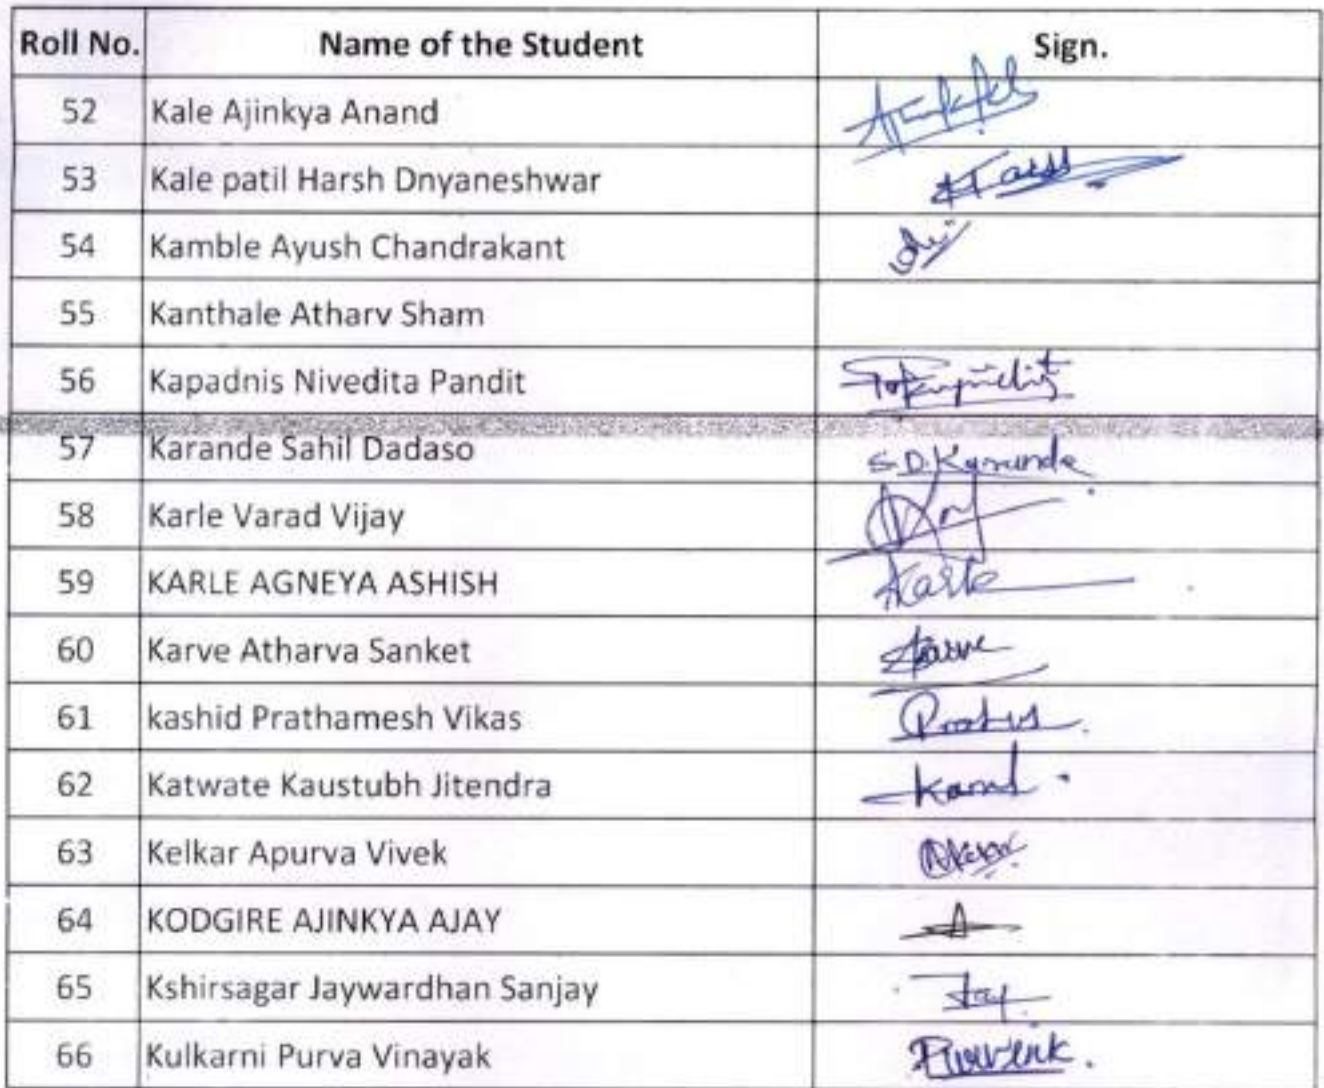 Roll No. Name of the Student Sign.
52 Kale Ajinkya Anand
53 Kale patil Harsh Dnyaneshwar
54 Kamble Ayush Chandrakant
55 Kanthale Atharv Sham
56 Kapadnis Nivedita Pandit
57 Karande Sahil Dadaso S.D.Karande
58 Karle Varad Vijay
59 KARLE AGNEYA ASHISH Karle
60 Karve Atharva Sanket Karve
61 kashid Prathamesh Vikas
62 Katwate Kaustubh Jitendra
63 Kelkar Apurva Vivek
64 KODGIRE AJINKYA AJAY
65 Kshirsagar Jaywardhan Sanjay Jay
66 Kulkarni Purva Vinayak